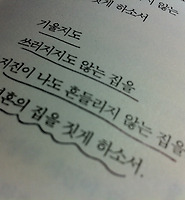 짓게 하소서
기울지도
쓰러지지도 않는 집을
지진이 나도 흔들리지 않는 집을
혼의 집을 짓게 하소서.